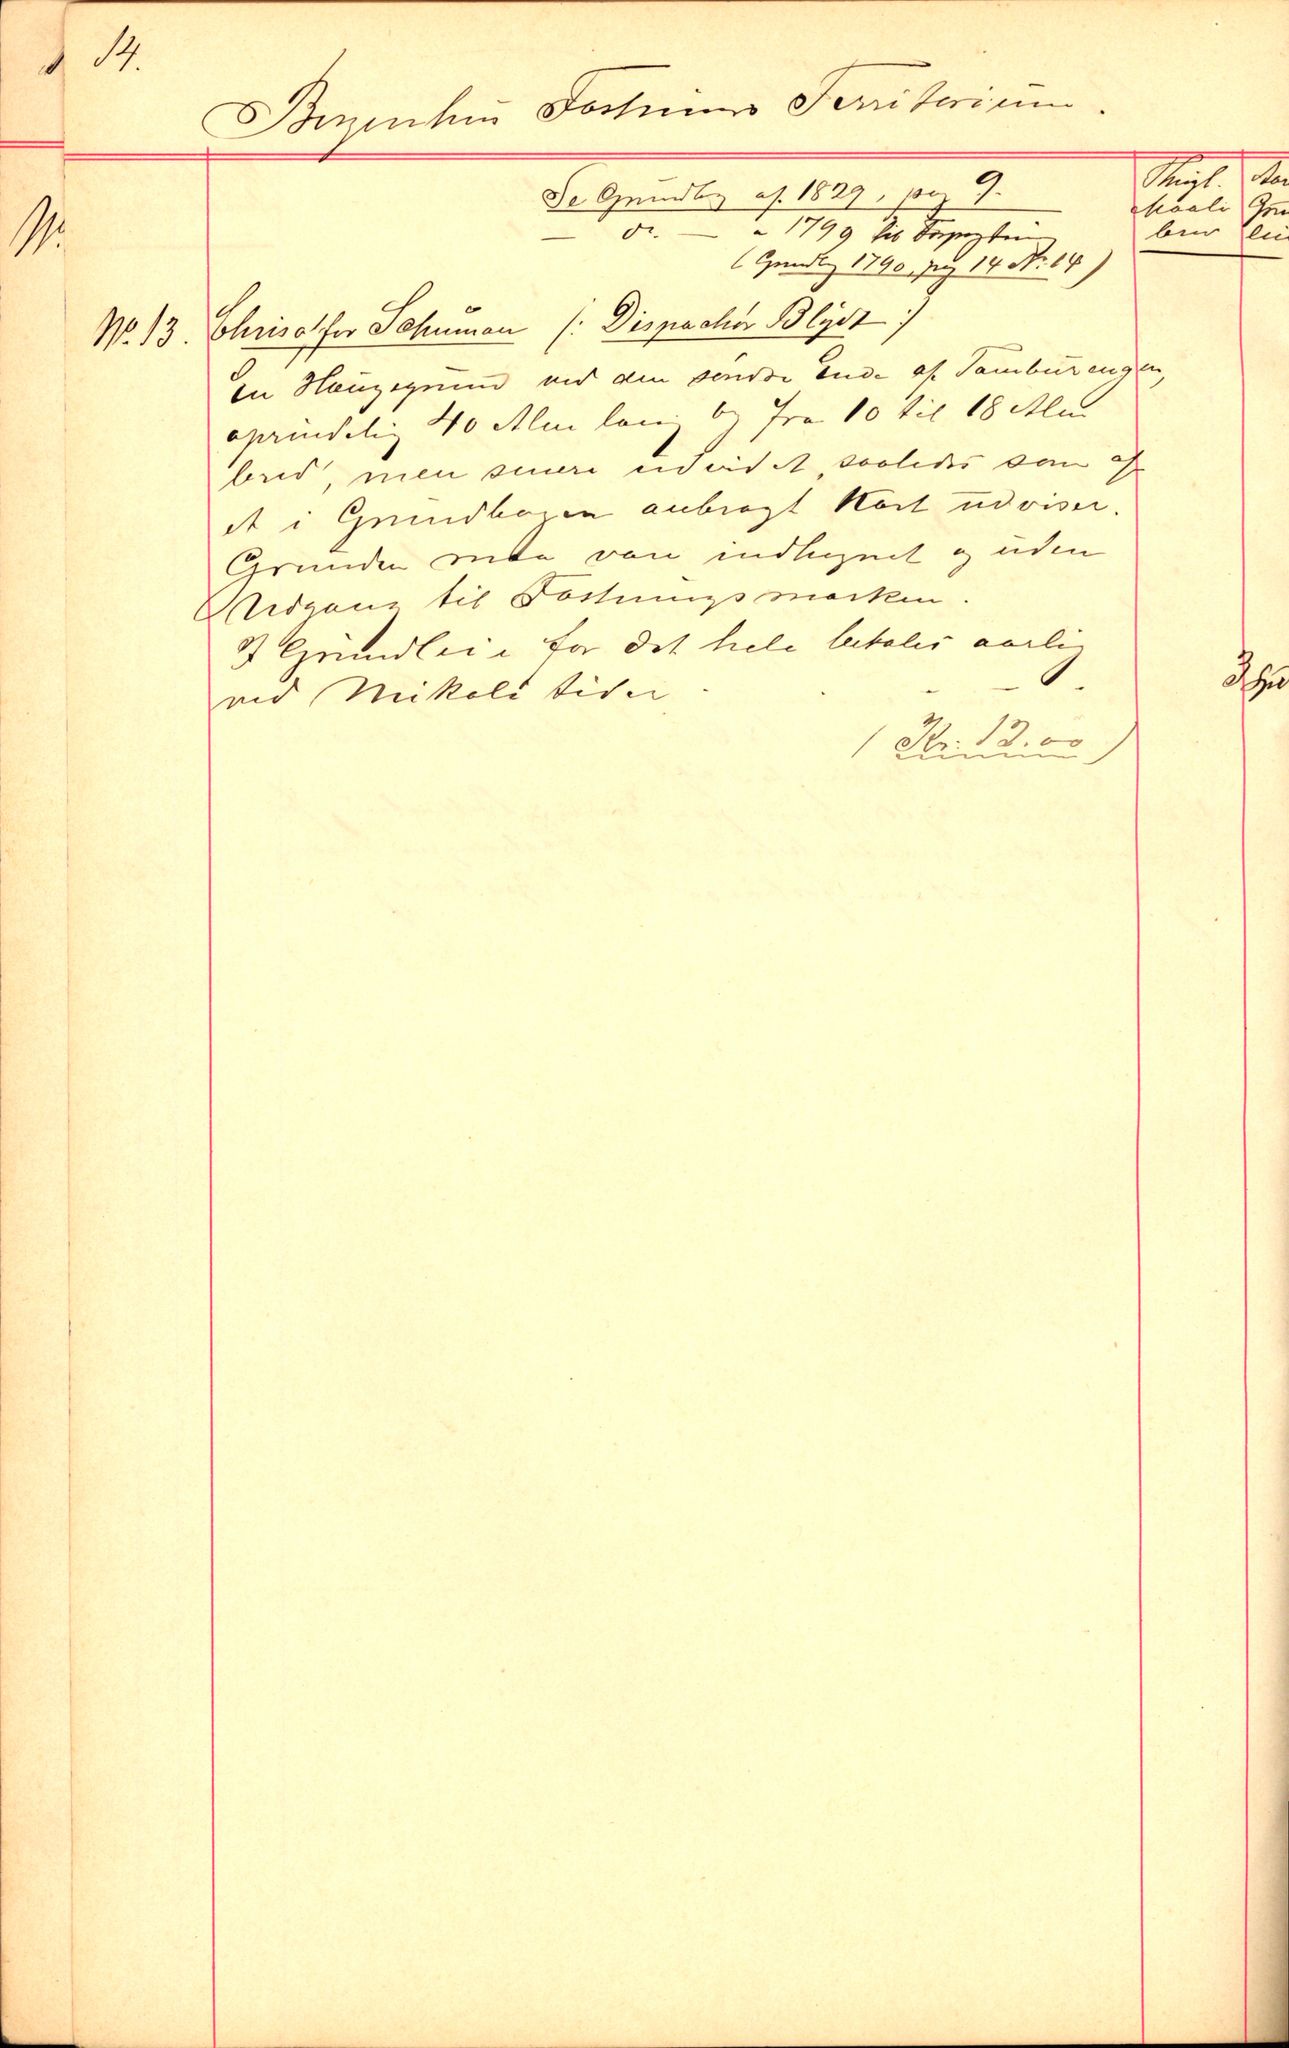 14.
Bergenhus Fæstnings Territorium.
Se Grundbog af 1829, pag 9.
— do. — " 1799 for
(Grundbg 1790, pag 14 No. 14)
Thingl.
Maale
brev
No. 13. Christoffer Schuman (: Dispachør Blydt :)
En Haugegrund ved den søndre Ende af Tamburengen,
oprindelig 40 Alen lang og fra 10 til 18 Alen
bred, men senere udvidet, saaledes som af
et i Grundbogen anbragt Kart udviser.
Grunden maa være indhegnet og uden
Nedgang til Fæstningsmarken.
I Grundleie for det hele betales aarlig
ved Mikeli tider
(Kr. 12.00)